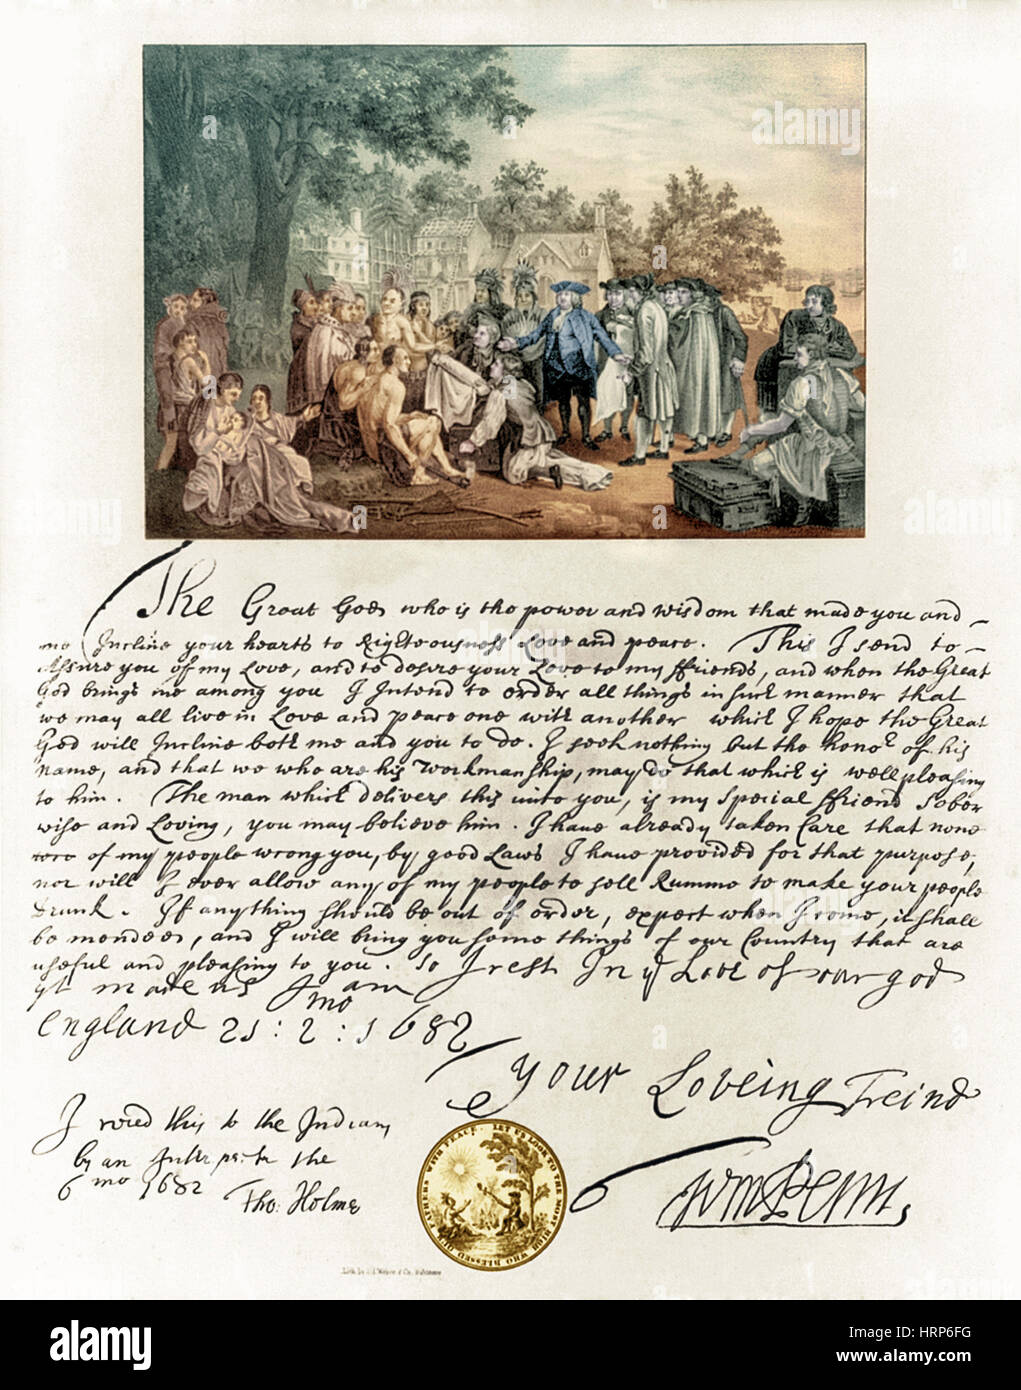 The Great God who is the power and wisdom that made you and
me Incline your hearts to Righteousness Love and peace. This I send to
Assure you of my Love, and to desire your Love to my ffriends, and when the Great
God brings me among you I Intend to order all things in such manner that
we may all live in Love and peace one with another which I hope the Great
God will Incline both me and you to do. I seek nothing but the honor of his
name, and that we who are his workmanship, may do that which is well pleasing
to him. The man which delivers this unto you, is my Special ffriend Sober
wise and Loving, you may believe him. I have already taken Care that none
of my people wrong you, by good Laws I have provided for that purpose,
nor will I ever allow any of my people to sell Rumme to make your people
Drunk. If anything should be out of order, expect when I come, it shall
be mended, and I will bring you some things of our Country that are
useful and pleasing to you. So I rest In ye Love of our god
yt made us I am
England 21 : 2 mo : 1682
Your Loveing Freind
I read this to the Indians
by an the
6 mo 1682
Tho: Holme
Wm Penn
LET US LOOK TO THE MOST HIGH WHO BLESSED OUR FATHERS WITH PEACE.
alamy
alamy
Image ID: HRP6FG
www.alamy.com